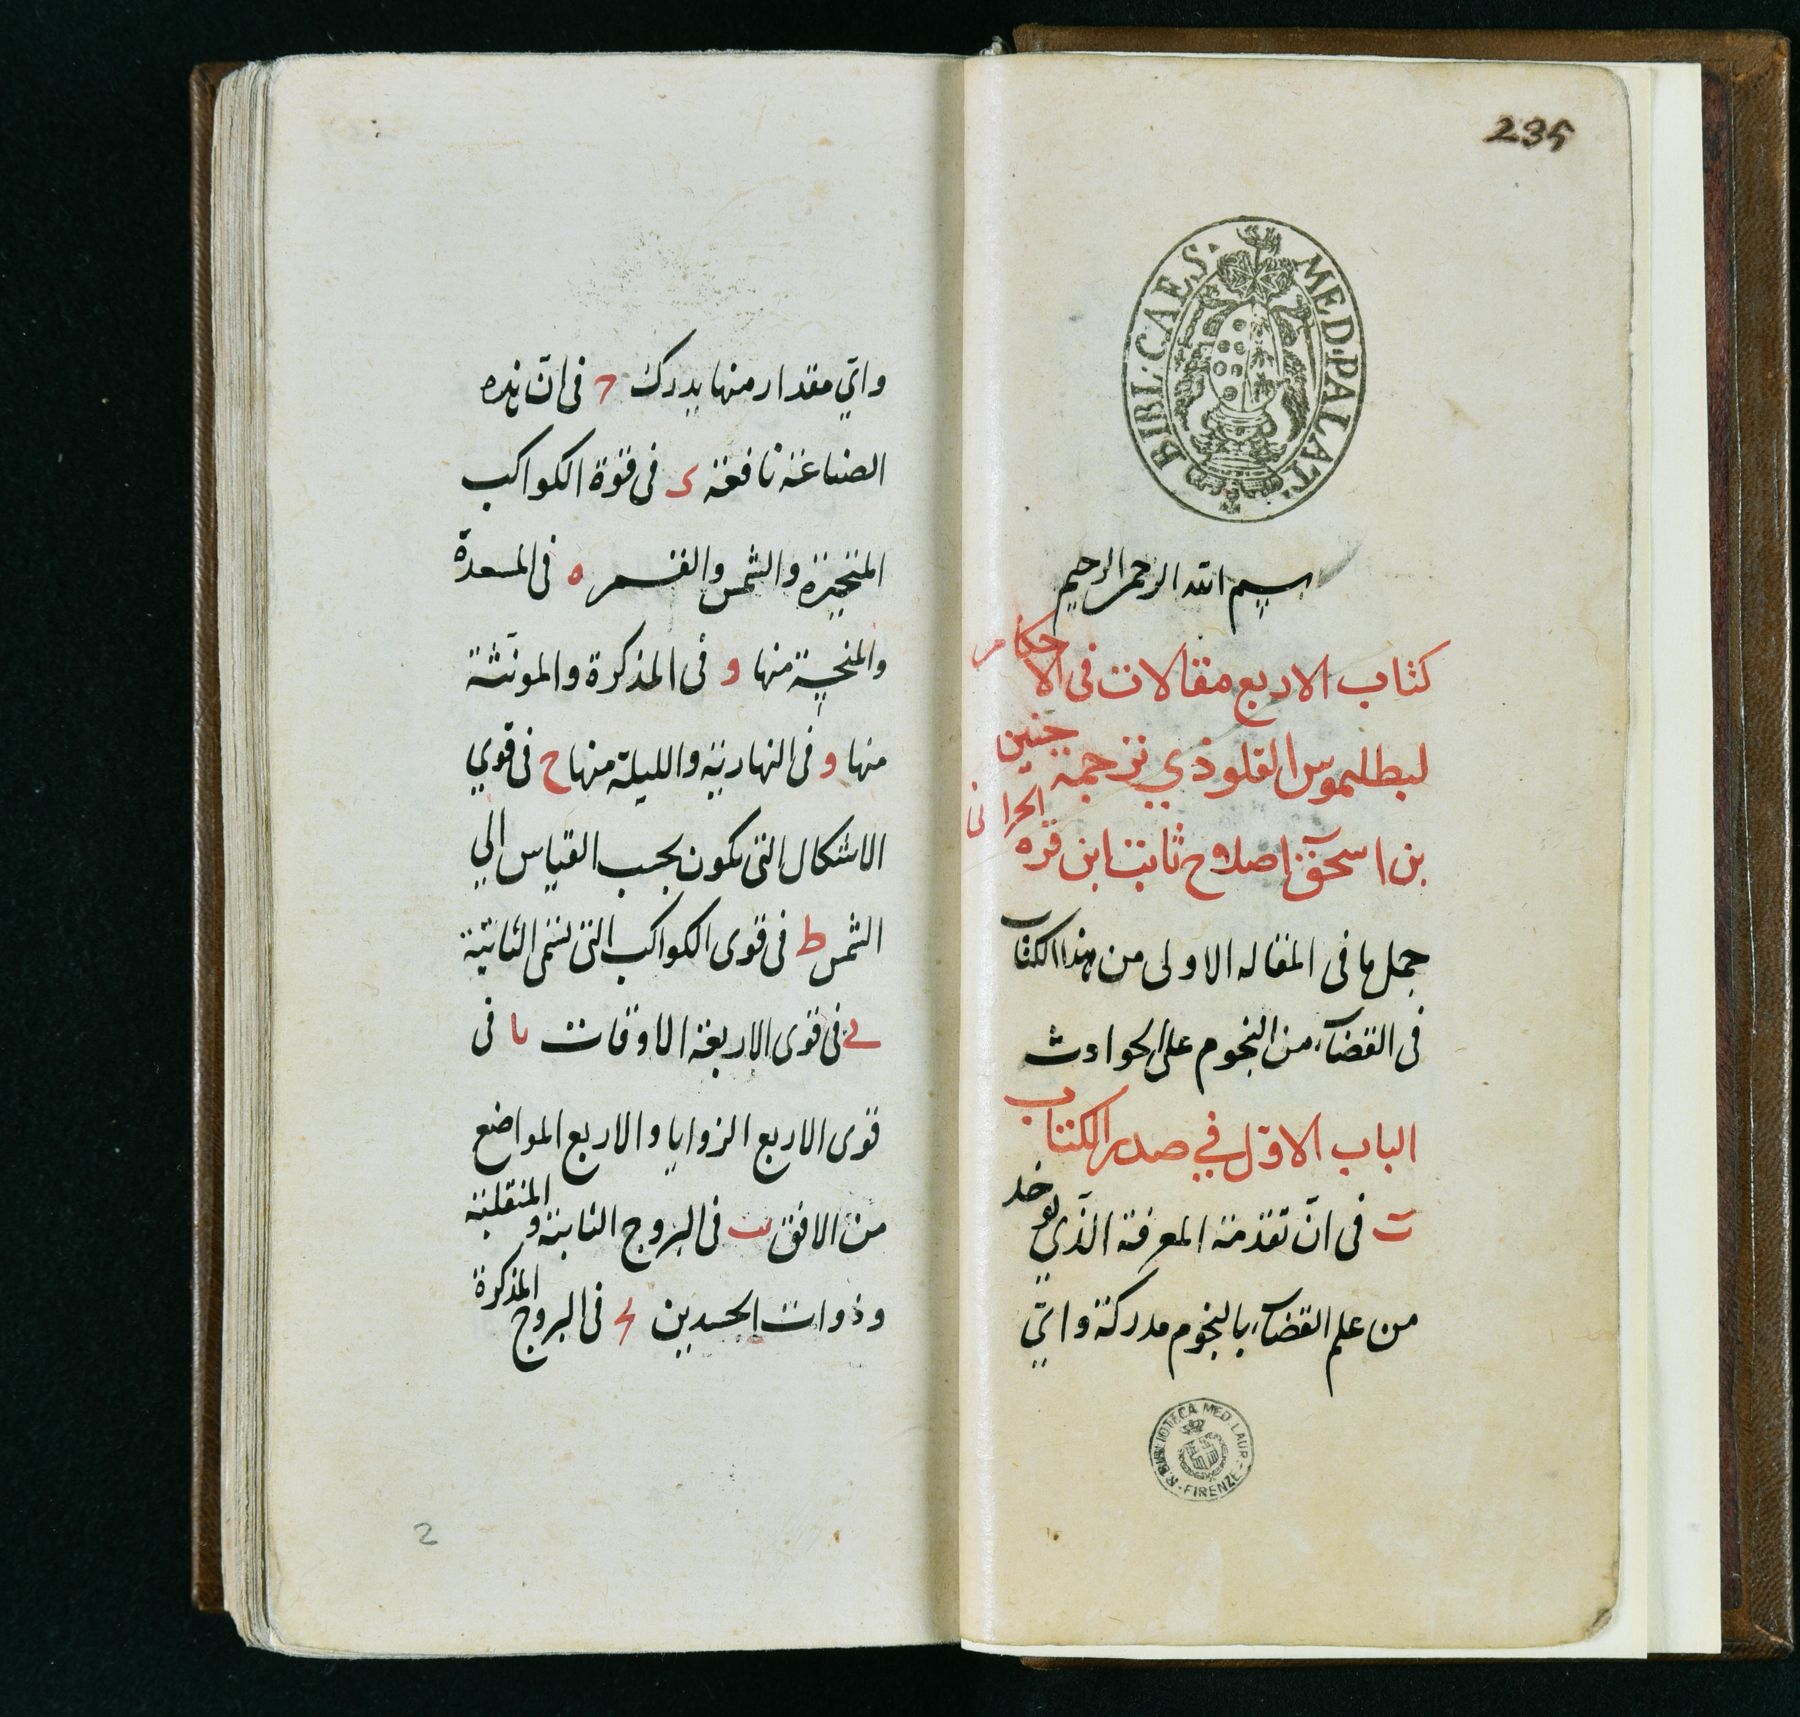 235
BIBL. CAES. MED. PALAT.
بسم الله الرحمن الرحيم
كتاب الاربع مقالات فى الاحكام
لبطلميوس القلوذي ترجمة حنين
بن اسحق اصلاح ثابت ابن قره الحرانى
جمل ما فى المقاله الاولى من هذا الكتاب
فى القضآء من النجوم على الحوادث
الباب الاول في صدر الكتاب
ب فى ان تقدمة المعرفة الذي يوخذ
من علم القضآء بالنجوم مدركة واي
R. BIBLIOTECA MED. LAUR. FIRENZE
واي مقدار منها يدرك ح فى ان هذه
الصناعة نافعة د فى قوة الكواكب
المتحيزة والشمس والقمر ه فى المسعدة
والمنحسة منها و فى المذكرة والمونثة
منها و فى النهارية والليلية منها ح فى قوي
الاشكال التى تكون بحسب القياس الي
الشمس ط فى قوى الكواكب التى تسمى الثابتة
ي فى قوى الاربعة الاوقات يا فى
قوى الاربع الزوايا والاربع المواضع
من الافق يب فى البروج الثابتة والمنقلبة
وذوات الجسدين يح فى البروج المذكرة
2